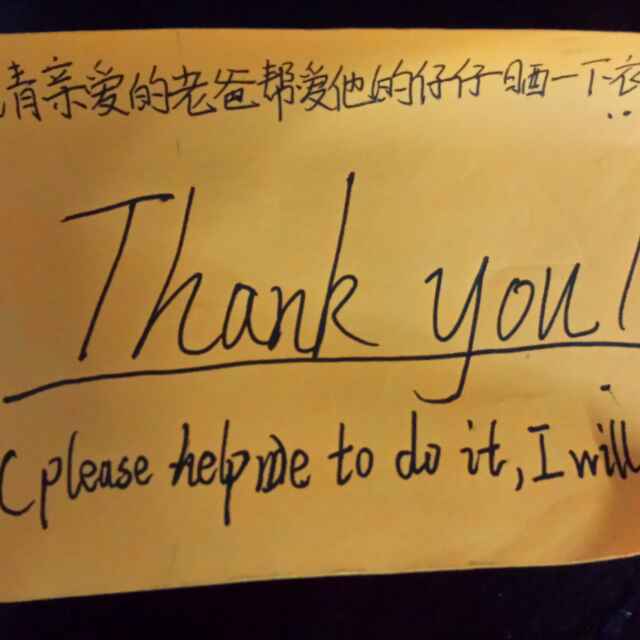 请亲爱的老爸帮爱他的仔仔晒一下衣
Thank you!
(please help me to do it, I will